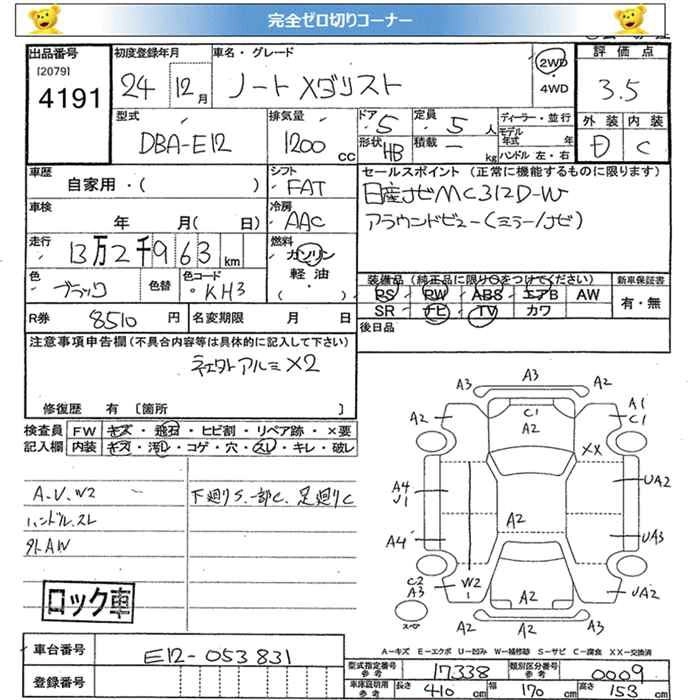 完全ゼロ切りコーナー
出品番号 初度登録年月 車名・グレード 評価点
[2079] 4191 24 12月 ノート Xダリスト 2WD・4WD 3.5
型式 排気量 ドア 5 定員 5人 ディーラー・並行 外装 内装
DBA-E12 1200cc 形状 HB 積載 － kg モデル年式 年 D C
ハンドル 左・右
車歴 シフト セールスポイント (正常に機能するものに限ります)
自家用・( ) FAT 日産ナビMC312D-W
車検 冷房 アラウンドビュー(ミラー/ナビ)
年 月( 日) AAC
走行 13万2千963km 燃料 ガソリン
軽油・( )
色 ブラック 色替 色コード KH3 装備品 (純正品に限り○をつけてください) 新車保証書
PS PW ABS エアB AW 有・無
SR ナビ TV カワ
R券 8510円 名変期限 月 日 後日品
注意事項申告欄(不具合内容等は具体的に記入して下さい)
アルミ X2
修復歴 有 [箇所 ]
検査員 FW キズ・飛石・ヒビ割・リペア跡・×要
記入欄 内装 キズ・汚れ・コゲ・穴・スレ・キレ・破レ
A3 A3 A2
A2 C1 A2 A1 C1
XX
A4 U1 UA2
A2
A4 UA3
C2 A3 W2 A2 UA2
スペア A2 A2 A2
A.V.W2 下廻りS.一部C.足廻りC
ハンドルスレ
外AW
ロック車
A－キズ E－エクボ U－凹み W－補修跡 S－サビ C－腐食 XX－交換済
車台番号 E12-053831 型式指定番号 参考 17338 類別区分番号 参考 0009
登録番号 車庫証明用 参考 長さ 410cm 幅 170cm 高さ 153cm